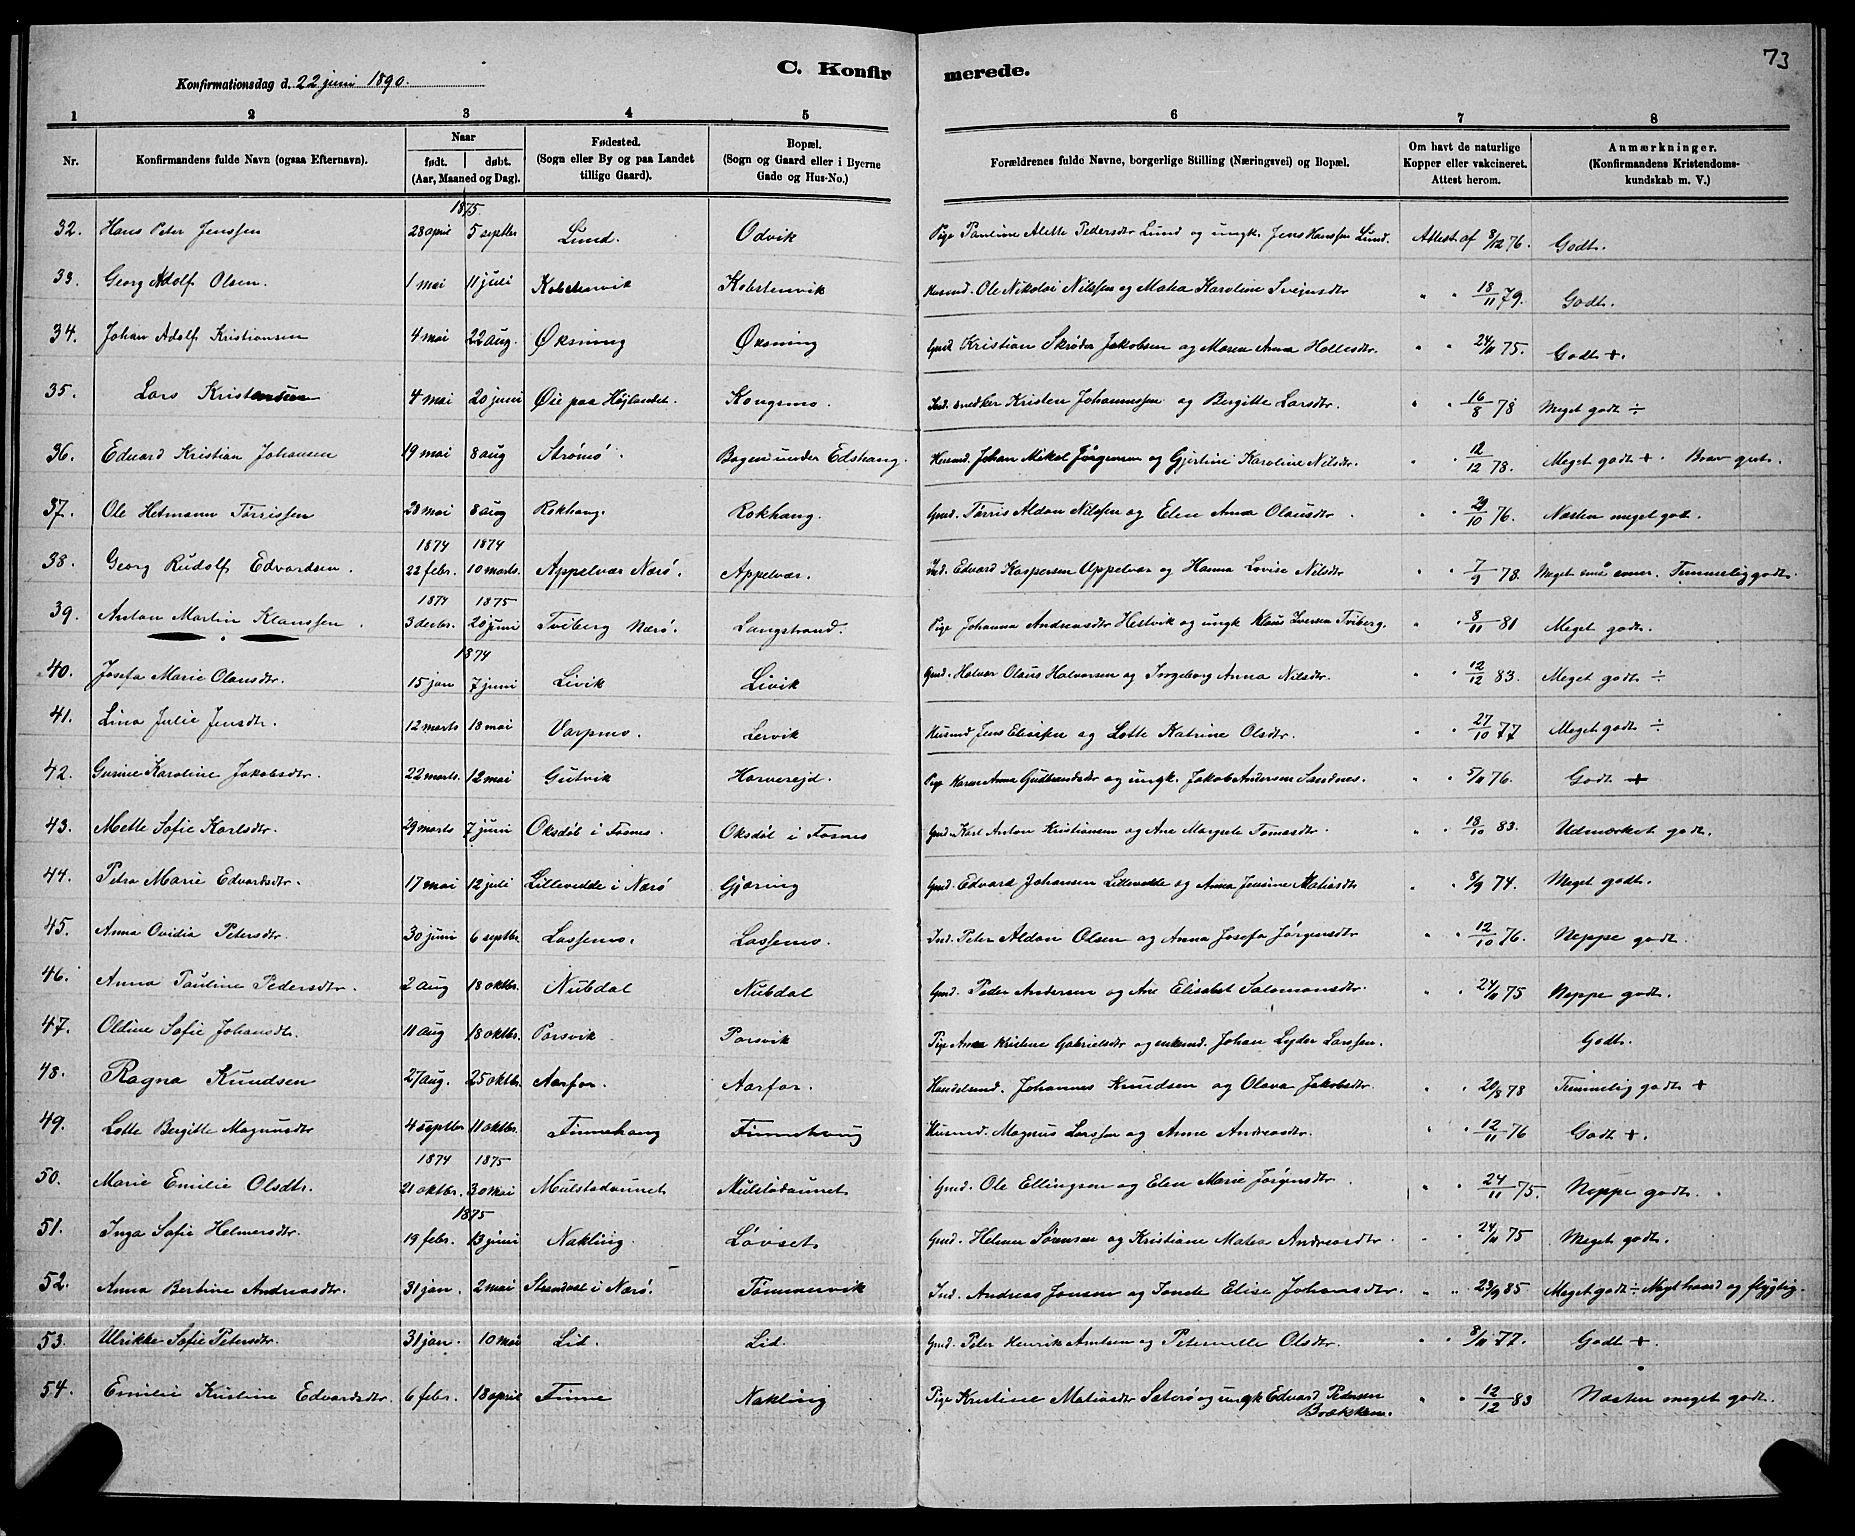 73
C. Konfirmerede.
Konfirmationsdag d. 22 juni 1890.
1 2 3 4 5 6 7 8
Nr. Konfirmandens fulde Navn (ogsaa Efternavn). Naar født. døbt. (Aar, Maaned og Dag). Fødested. (Sogn eller By og paa Landet tillige Gaard). Bopæl. (Sogn og Gaard eller i Byerne Gade og Hus-No.) Forældrenes fulde Navne, borgerlige Stilling (Næringsvei) og Bopæl. Om havt de naturlige Kopper eller vakcineret. Attest herom. Anmærkninger. (Konfirmandens Kristendomskundskab m. V.)
1875
32. Hans Peter Jenssen 28 april 5 septbr Lund. Odvik Pige Pauline Alette Pedersdtr Lund og ungk. Jens Hanssen Lund. Attest af 8/12 76. Godt.
33. Georg Adolf Olsen. 1 mai 11 juli Kolstenvik Kolstenvik Husmd. Ole Nikolai Nilssen og Matea Karoline Svejnsdtr " " 18/11 79. Godt.
34. Johan Adolf Kristiansen 4 mai 22 aug. Øksning Øksning Gmd. Kristian Skrøder Jakobsen og Maren Anna Hollesdtr. " " 24/11 75. Godt +.
35. Lars Kristensen 4 mai 20 juni Øie paa Højlandet. Kongsmo. Ind. snedker Kristen Johannessen og Bergitte Larsdtr. " " 16/8 78 Meget godt ÷
36. Edvard Kristian Johansen 19 mai 8 aug Strømø. Bogen under Edshaug. Husmd. Johan Mikal Jørgensen og Gjertine Karoline Nilsdtr. " " 12/12 78. Meget godt +. Brav gut.
37. Ole Hetmann Tørrissen 28 mai 8 aug Rokhaug. Rokhaug. Gmd. Tørris Aldon Nilssen og Elen Anna Olausdtr. " " /10 76. Næsten meget godt.
1874 1874
38. Georg Rudolf Edvardsen. 22 febr. 10 marts. Appelvær Nærø. Appelvær. Ind. Edvard Kaspersen Appelvær og Hanna Lovise Nilsdtr " " 7/9 78. Meget små evner. Temmelig godt.
1874 1875
39. Anton Martin Klaussen. 3 decbr. 20 juni Tviberg Nærø. Langstrand. Pige Johanna Andreasdtr Hestvik og ungk Klaus Iversen Tviberg. " " 8/11 81 Meget godt.
1874
40. Josefa Marie Olausdtr. 15 jan 7 juni Livik Livik Gmd. Halvor Olaus Halvorsen og Ingeborg Anna Nilsdtr. " " 12/12 83. Meget godt ÷
41. Lina Julie Jensdtr. 12 marts 18 mai Varpmo. Lervik Husmd Jens Elissen og Lotte Katrine Olsdtr. " " 27/10 77 Meget godt ÷
42. Gurine Karoline Jakobsdtr. 22 marts. 12 mai Gutvik Horverejd. Pige Karen Anna Gudbrandsdtr og ungk. Jakob Andersen Sandnes. " " 5/11 76. Godt +
43. Mette Sofie Karlsdtr. 29 marts 7 juni Oksdøl i Fosnes. Oksdøl i Fosnes Gmd. Karl Anton Kristiansen og Ane Margrete Tomasdtr. " " 18/10 83. Udmærket godt.
44. Petra Marie Edvardsdtr. 17 mai 12 juli Lillevedde i Nærø Gjøring Gmd. Edvard Johansen Lillevedde og Anna Jensine Matiasdtr " " 8/9 74. Meget godt.
45. Anna Ovidia Petersdtr. 30 juni 6 septbr. Lassemo. Lassemo. Ind. Peter Aldon Olsen og Anna Josefa Jørgensdtr " " 12/10 76. Neppe godt.
46. Anna Pauline Pedersdtr. 2 aug 18 oktbr. Nubdal Nubdal Gmd. Peder Andersen og Ane Elisabet Salamonsdtr. " " 24/11 75 Neppe godt.
47. Oldine Sofie Johansdtr. 11 aug 18 oktbr. Porsvik Porsvik Pige Anna Kristine Gabrielsdtr og enkemd. Johan Lyder Larssen. Godt.
48. Ragna Knudsen 27 aug. 25 oktbr. Aarfor. Aarfor. Handelsmd. Johannes Knudsen og Olava Jakobsdtr. " " 20/8 78 Temmelig godt +
49. Lotte Bergitte Magnusdtr 4 septbr 11 oktbr. Finnehaug Finnehaug Husmd. Magnus Larssen og Anne Andreasdtr. " " 12/11 76 Godt +.
1874 1875
50. Marie Emilie Olsdtr. 21 oktbr. 30 mai Mulstadaunet Mulstadaunet Gmd. Ole Ellingsen og Elen Marie Jørgensdtr. " " 24/11 75. Neppe godt.
1875
51. Inga Sofie Helmersdtr. 19 febr. 13 juni Nakling. Løvset Gmd. Helmer Sørensen og Kristiane Matea Andreasdtr. " " 24/11 75 Meget godt.
52. Anna Bertine Andreasdtr. 31 jan. 2 mai i Nærø. Tømmervik Ind. Andreas Jonsen og Tonette Elise Johansdtr. " " 23/9 85 Meget godt ÷ Meget haard og flygtig.
53. Ulrikke Sofie Petersdtr. 31 jan. 10 mai Lid. Lid. Gmd. Peter Henrik Arntsen og Peternelle Olsdtr. " " 8/11 77. Godt +
54. Emilie Kristine Edvardsdtr. 6 febr. 18 april Finne Nakling Pige Kristine Matiasdtr Saterø og ungk Edvard Pedersen Brækken. " " 12/12 83 Næsten meget godt.